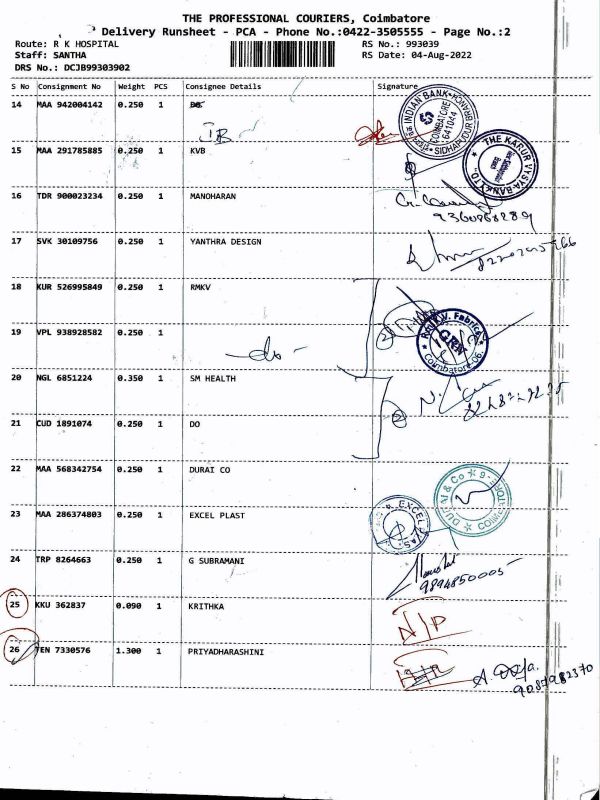 THE PROFESSIONAL COURIERS, Coimbatore
Delivery Runsheet - PCA - Phone No.:0422-3505555 - Page No.:2
Route: R K HOSPITAL RS No.: 993039
Staff: SANTHA RS Date: 04-Aug-2022
DRS No.: DCJB99303902
S No Consignment No Weight PCS Consignee Details Signature
14 MAA 942004142 0.250 1 DO
IB
INDIAN BANK SIDHAPUDUR BRANCH COIMBATORE 641044
15 MAA 291785885 0.250 1 KVB
THE KARUR VYSYA BANK LTD.
16 TDR 900023234 0.250 1 MANOHARAN
9360868289
17 SVK 30109756 0.250 1 YANTHRA DESIGN
18 KUR 526995849 0.250 1 RMKV
19 VPL 938928582 0.250 1
-do-
2
Fabrics Coimbatore-06.
20 NGL 6851224 0.350 1 SM HEALTH
21 CUD 1891074 0.250 1 DO
2
22 MAA 568342754 0.250 1 DURAI CO
DURAI & Co COIMBATORE-6
23 MAA 286374803 0.250 1 EXCEL PLAST
EXCEL PLAS
24 TRP 8264663 0.250 1 G SUBRAMANI
9894850005
25 KKU 362837 0.090 1 KRITHKA
N/P
26 TEN 7330576 1.300 1 PRIYADHARASHINI
9087982370